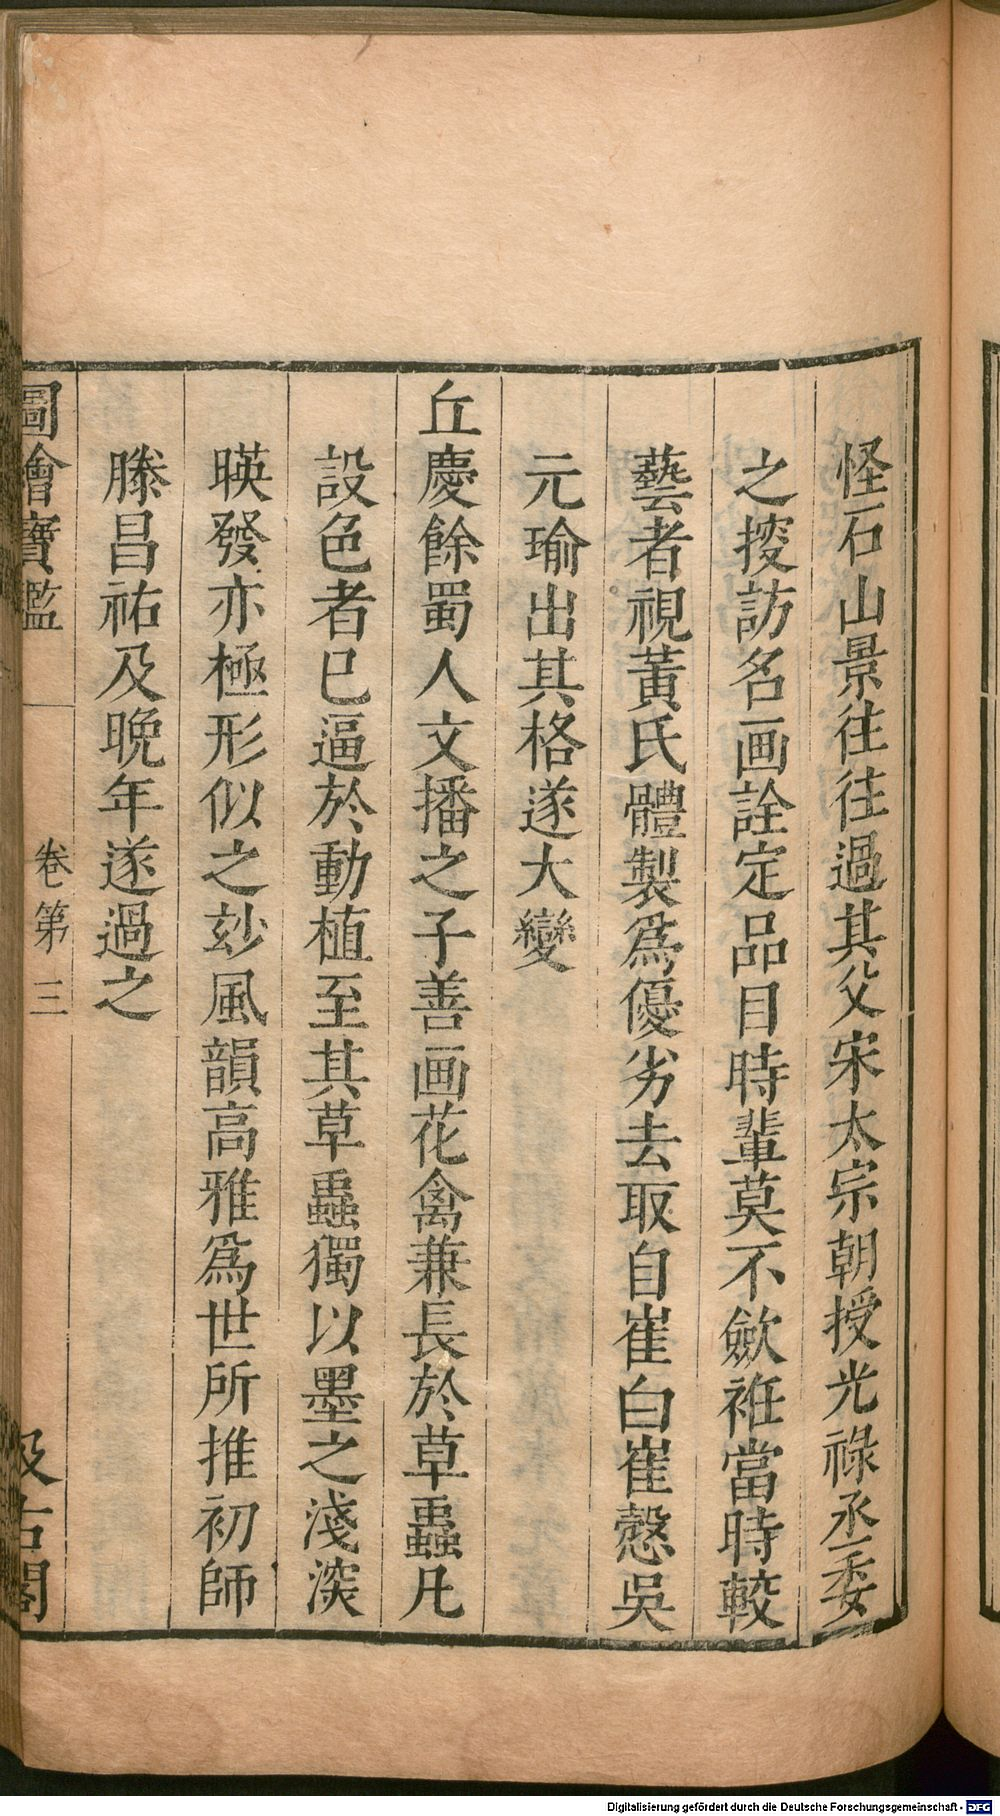 怪石山景往往過其父宋太宗朝授光祿丞委
之搜訪名画詮定品目時輩莫不歛袵當時較
藝者視黃氏體製爲優劣去取自崔白崔慤吳
元瑜出其格遂大變
丘慶餘蜀人文播之子善画花禽兼長於草蟲凡
設色者已逼於動植至其草蟲獨以墨之淺深
暎發亦極形似之玅風韻高雅爲世所推初師
滕昌祐及晚年遂過之
圖繪寶鑑 卷第三 汲古閣
Digitalisierung gefördert durch die Deutsche Forschungsgemeinschaft - DFG